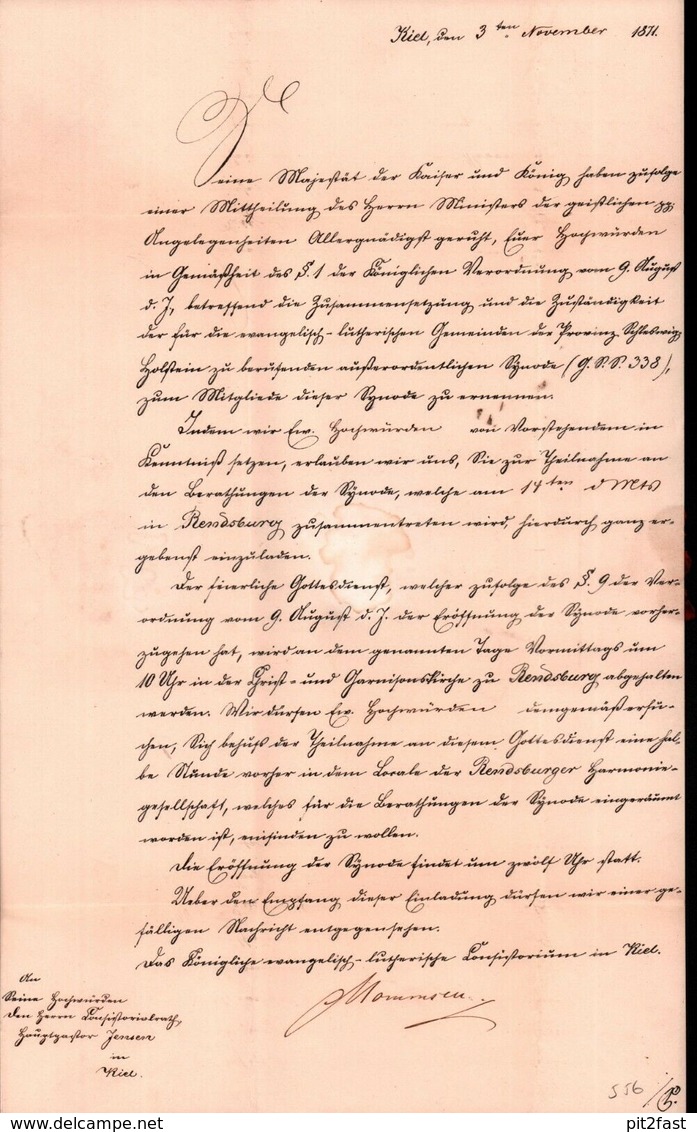 Kiel, den 3ten November 1871.
Seine Majestät der Kaiser und König haben zufolge
einer Mittheilung des Herrn Ministers der geistlichen pp.
Angelegenheiten Allergnädigst geruht, Euer Hochwürden
in Gemäßheit des §. 1 der Königlichen Verordnung vom 9. August
d. J., betreffend die Zusammensetzung und die Zuständigkeit
der für die evangelisch-lutherischen Gemeinden der Provinz Schleswig-
Holstein zu berufenden außerordentlichen Synode (G. S. S. 338),
zum Mitgliede dieser Synode zu ernennen.
Indem wir Ew. Hochwürden von Vorstehendem in
Kenntniß setzen, erlauben wir uns, Sie zur Theilnahme an
den Berathungen der Synode, welche am 14ten d Mts
in Rendsburg zusammentreten wird, hierdurch ganz er-
gebenst einzuladen.
Der feierliche Gottesdienst, welcher zufolge des §. 9 der Ver-
ordnung vom 9. August d. J. der Eröffnung der Synode vorher-
zugehen hat, wird an dem genannten Tage Vormittags um
10 Uhr in der Christ- und Garnisonskirche zu Rendsburg abgehalten
werden. Wir dürfen Ew. Hochwürden demgemäß ersu-
chen, Sich behufs der Theilnahme an diesem Gottesdienst eine hal-
be Stunde vorher in dem Locale der Rendsburger Harmonie-
gesellschaft, welches für die Berathungen der Synode eingeräumt
worden ist, einfinden zu wollen.
Die Eröffnung der Synode findet um zwölf Uhr statt.
Ueber den Empfang dieser Einladung dürfen wir einer ge-
fälligen Nachricht entgegensehen.
Das Königliche evangelisch-lutherische Consistorium in Kiel.
Mommsen.
An
Seine Hochwürden
den Herrn Consistorialrath,
Hauptpastor Jensen
in
Kiel.
S 56
pit2fast